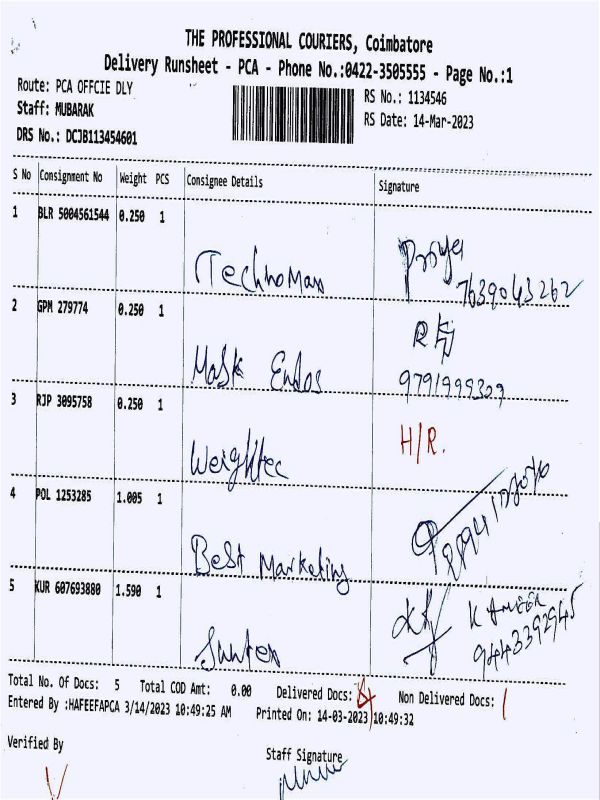 THE PROFESSIONAL COURIERS, Coimbatore
Delivery Runsheet - PCA - Phone No.:0422-3505555 - Page No.:1
Route: PCA OFFCIE DLY
RS No.: 1134546
Staff: MUBARAK
RS Date: 14-Mar-2023
DRS No.: DCJB113454601
S No Consignment No Weight PCS Consignee Details Signature
1 BLR 5004561544 0.250 1
TechnoMan Priya
7639043262
2 GPM 279774 0.250 1
Mask Endos
9791999309
3 RJP 3095758 0.250 1
Weightec H/R.
4 POL 1253285 1.005 1
Best Marketing
5 KUR 607693880 1.590 1
Suntex K AMEER
9443392945
Total No. Of Docs: 5 Total COD Amt: 0.00 Delivered Docs: 4 Non Delivered Docs: 1
Entered By :HAFEEFAPCA 3/14/2023 10:49:25 AM Printed On: 14-03-2023 10:49:32
Verified By
Staff Signature